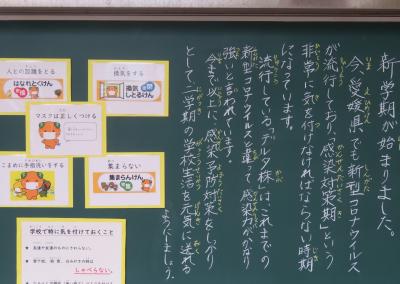 新学期が始まりました。
今、愛媛県でも新型コロナウイルス
が流行しており、「感染対策期」という
非常に気を付けなければならない時期
になっています。
流行している「デルタ株」は、これまでの
新型コロナウイルスと違って、感染力がかなり
強いと言われています。
今まで以上に、感染予防対策をしっかり
として、二学期の学校生活を元気に送れる
ようにしましょう。
人との距離をとる
はなれとくけん
換気をする
換気しとるけん
マスクは正しくつける
こまめに手指洗いをする
集まらない
集まらんけん
学校で特に気を付けておくこと
★ 友達や友達のものにさわらない。
★ 登下校、給食、歯みがきの時は
しゃべらない。